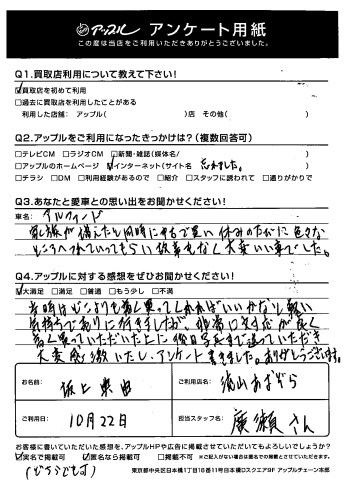 アップル アンケート用紙
この度は当店をご利用いただきありがとうございました。
Q1.買取店利用について教えて下さい!
☑買取店を初めて利用
□過去に買取店を利用したことがある
利用した店舗: アップル( )店 その他( )
Q2.アップルをご利用になったきっかけは?(複数回答可)
□テレビCM □ラジオCM □新聞・雑誌(媒体名/ )
□アップルのホームページ ☑インターネット(サイト名 忘れました。)
□チラシ □DM □利用経験があるので □紹介 □スタッフに誘われて □通りがかりで
Q3.あなたと愛車との思い出をお聞かせください!
車名: アルファード
家族が 休みのたびに色々な
ところへつれていってもらい 故障もなく大変いい車でした。
Q4.アップルに対する感想をぜひお聞かせください!
☑大満足 □満足 □普通 □もう少し □不満
高く買ってくれればいいかなと軽い
気持ちで 行きましたが、非常に対応が良く
高く買っていただいた上に後日写真まで送っていただき
大変感激いたし、アンケート書きました。ありがとうございます。
お名前:
ご利用店名: 流山おおぞら
ご利用日: 10月22日
担当スタッフ名: 廣瀬さん
お客様に書いていただいた感想を、アップルHPや広告に掲載させていただいてもよろしいでしょうか?
☑実名で掲載可 ☑匿名なら掲載可 □掲載不可 ※掲載させていただく場合は匿名での掲載とさせていただきます。
(どちらでも可)
東京都中央区日本橋1丁目16番11号日本橋Dスクエア9F アップルチェーン本部